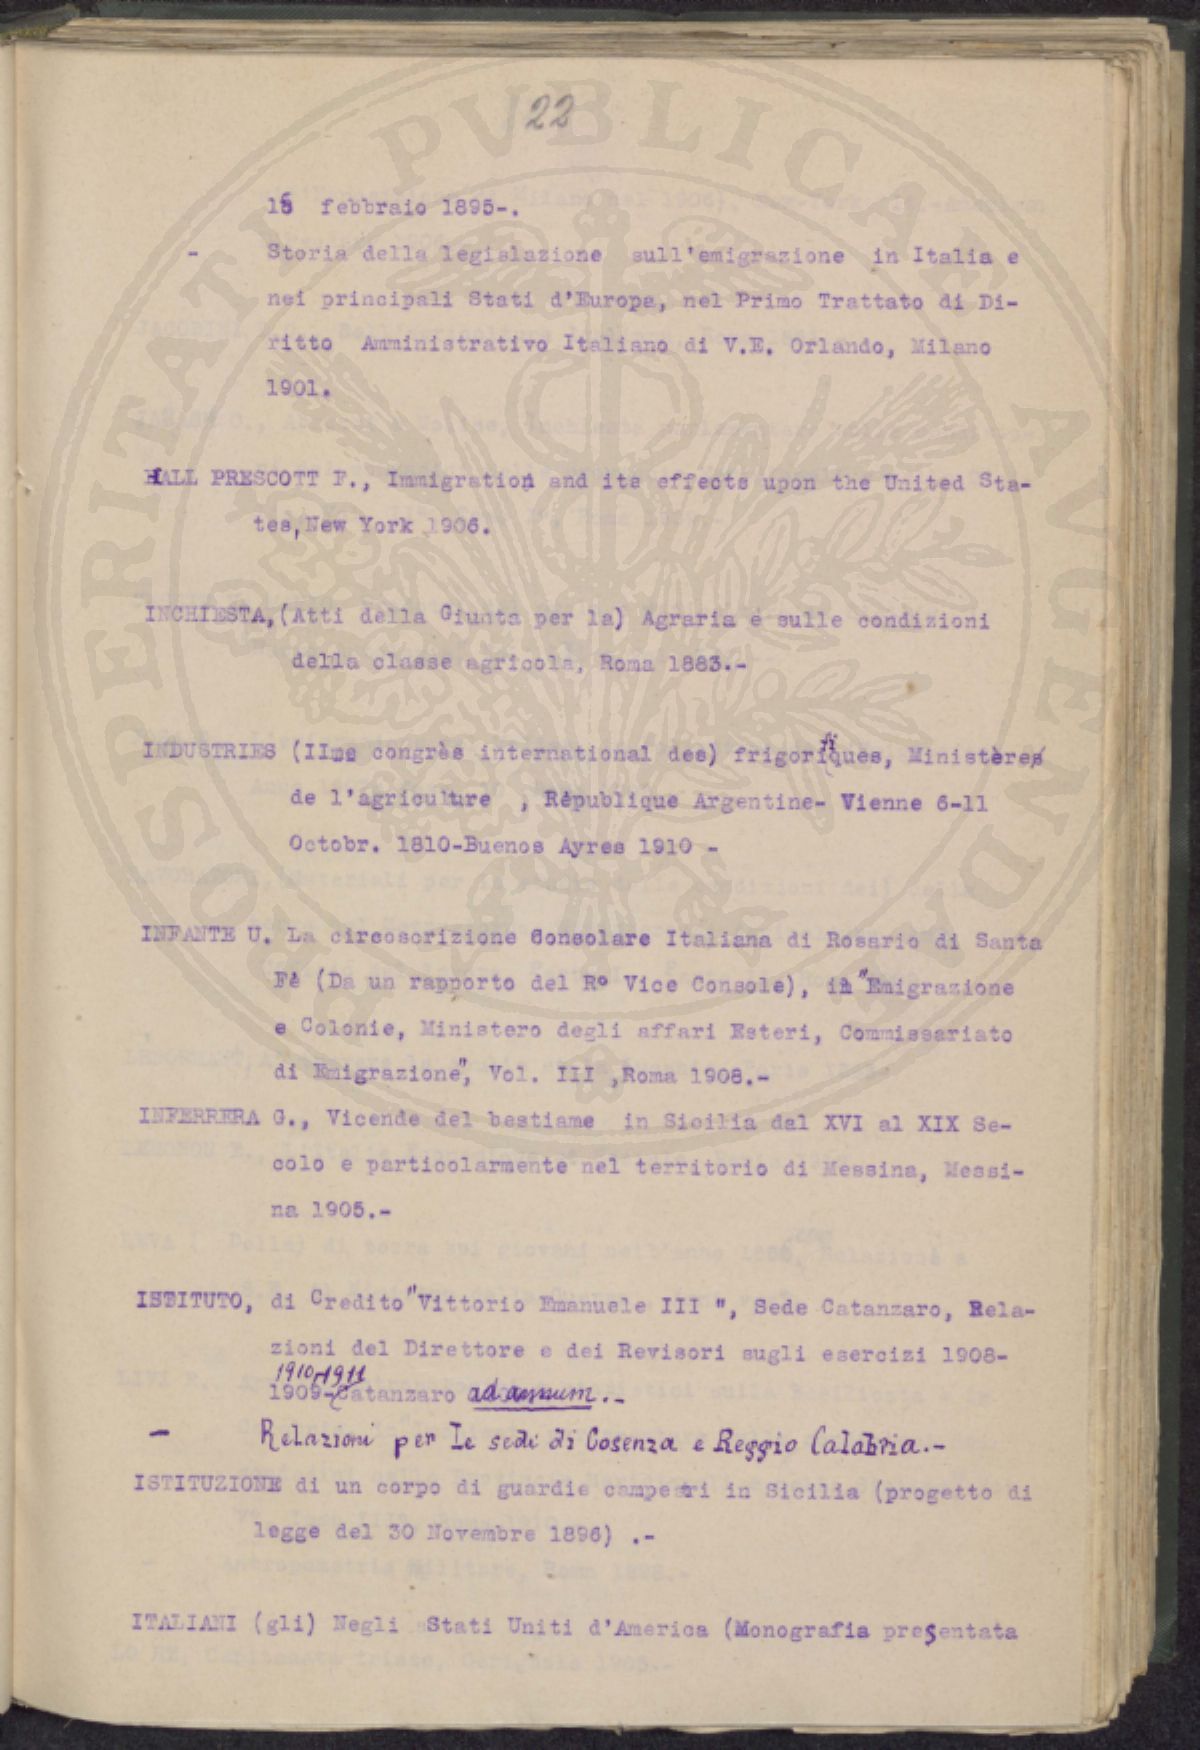 22
16 febbraio 1895-.
- Storia della legislazione sull'emigrazione in Italia e
nei principali Stati d'Europa, nel Primo Trattato di Di-
ritto Amministrativo Italiano di V.E. Orlando, Milano
1901.
HALL PRESCOTT F., Immigration and its effects upon the United Sta-
tes, New York 1906.
INCHIESTA, (Atti della Giunta per la) Agraria e sulle condizioni
della classe agricola, Roma 1883.-
INDUSTRIES (IIme congrès international des) frigorifiques, Ministère
de l'agriculture , Rèpublique Argentine- Vienne 6-11
Octobr. 1810-Buenos Ayres 1910 -
INFANTE U. La circoscrizione Consolare Italiana di Rosario di Santa
Fè (Da un rapporto del R° Vice Console), in "Emigrazione
e Colonie, Ministero degli affari Esteri, Commissariato
di Emigrazione", Vol. III ,Roma 1908.-
INFERRERA G., Vicende del bestiame in Sicilia dal XVI al XIX Se-
colo e particolarmente nel territorio di Messina, Messi-
na 1905.-
ISTITUTO, di Credito "Vittorio Emanuele III ", Sede Catanzaro, Rela-
zioni del Direttore e dei Revisori sugli esercizi 1908-
1910-1911
1909-Catanzaro ad annum.-
- Relazioni per le sedi di Cosenza e Reggio Calabria.-
ISTITUZIONE di un corpo di guardie campestri in Sicilia (progetto di
legge del 30 Novembre 1896) .-
ITALIANI (gli) Negli Stati Uniti d'America (Monografia presentata
PROSPERITATI PVBLICAE AVGENDAE